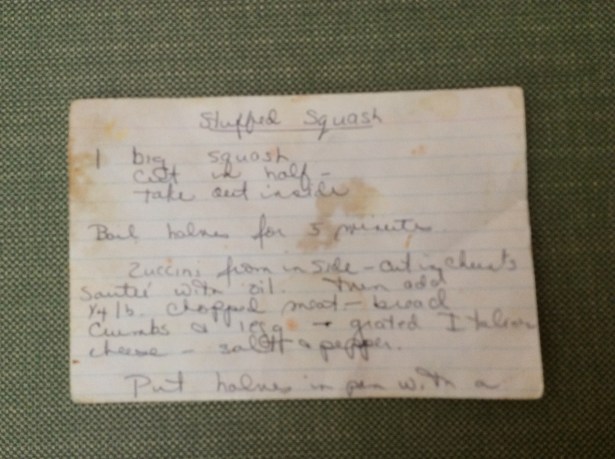 Stuffed Squash
1 big squash
cut in half -
take out inside
Boil halves for 5 minutes
Zuccini from inside - cut in chunks
Sauteé with oil. Then add
1/4 lb. chopped meat - bread
crumbs & 1 egg - grated Italian
cheese - salt & pepper.
Put halves in pan with a